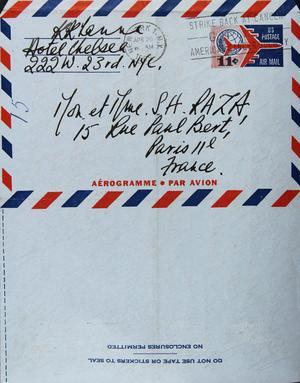 KKhanna
Hotel Chelsea
222 W. 23rd. NYC.
APR 20
AM
STRIKE BACK AT CANCER
AMERI
Y
U.S. POSTAGE
11¢
AIR MAIL
15
Mon. et Mme. S.H. RAZA
15 Rue Paul Bert,
Paris 11e
France.
AÉROGRAMME • PAR AVION
NO ENCLOSURES PERMITTED
DO NOT USE TAPE OR STICKERS TO SEAL